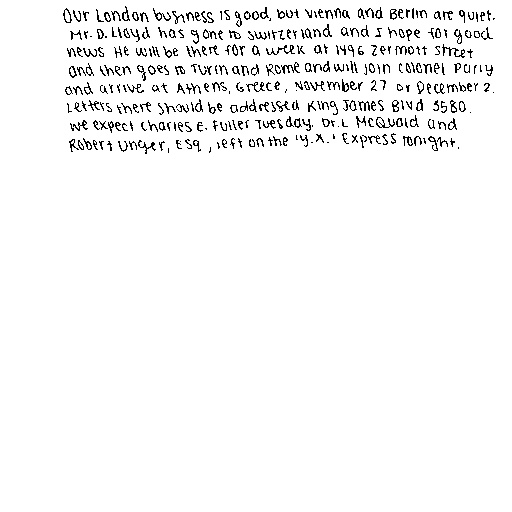 Our London business is good, but Vienna and Berlin are quiet.
Mr. D. Lloyd has gone to Switzerland and I hope for good
news He will be there for a week at 1496 Zermott Street
and then goes to Turin and Rome and will join Colonel Parry
and arrive at Athens, Greece, November 27 or December 2.
Letters there should be addressed King James Blvd 3580.
We expect Charles E. Fuller Tuesday. Dr. L McQuaid and
Robert Unger, Esq., left on the 'Y.X.' Express tonight.